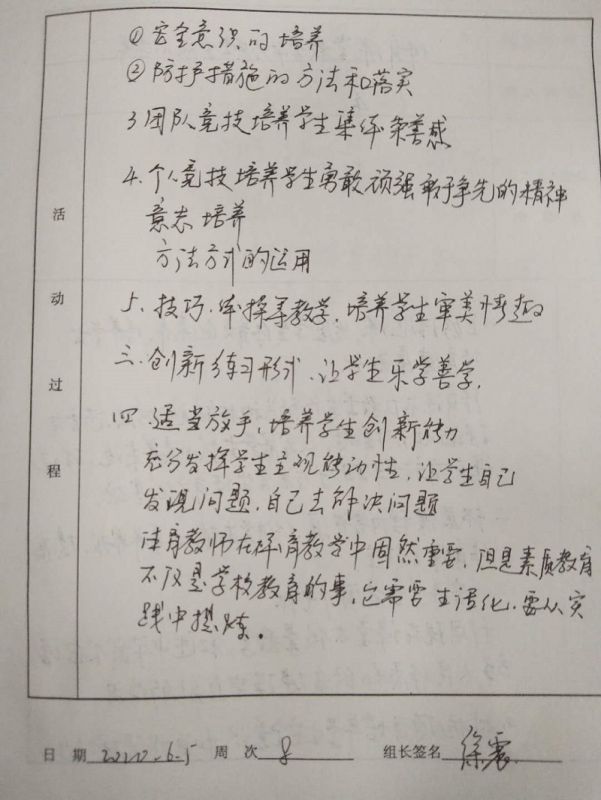 ①安全意识的培养
②防护措施的方法和落实
3团队竞技培养学生集体荣誉感
4.个人竞技培养学生勇敢顽强敢于争先的精神
意志培养
方法方式的运用
5、技巧、体操等教学,培养学生审美情趣
三、创新练习形式、让学生乐学善学,
四、适当放手,培养学生创新能力
充分发挥学生主观能动性,让学生自己
发现问题,自己去解决问题
体育教师在体育教学中固然重要,但是素质教育
不仅是学校教育的事,它需要生活化,要从实
践中提炼。
活动过程
日期 2020.6.5 周次 8 组长签名 徐震